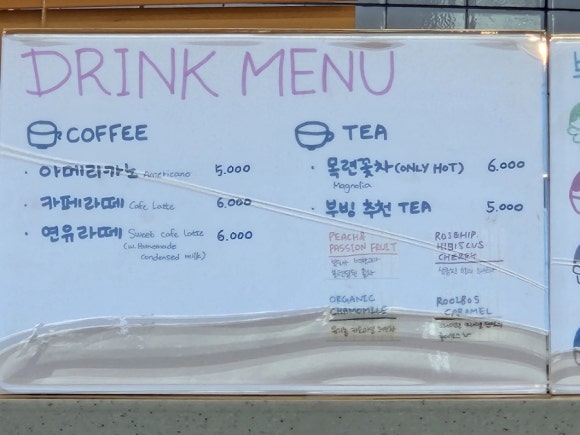 DRINK MENU
COFFEE
· 아메리카노 Americano 5.000
· 카페라떼 Cafe Latte 6.000
· 연유라떼 Sweet cafe Latte 6.000
(w. Homemade
condensed milk)
TEA
· 목련꽃차 (ONLY HOT) 6.000
Magnolia
· 부빙 추천 TEA 5.000
PEACH &
PASSION FRUIT
ROSEHIP
HIBISCUS
CHERRY
ORGANIC
CHAMOMILE
ROOIBOS
CARAMEL